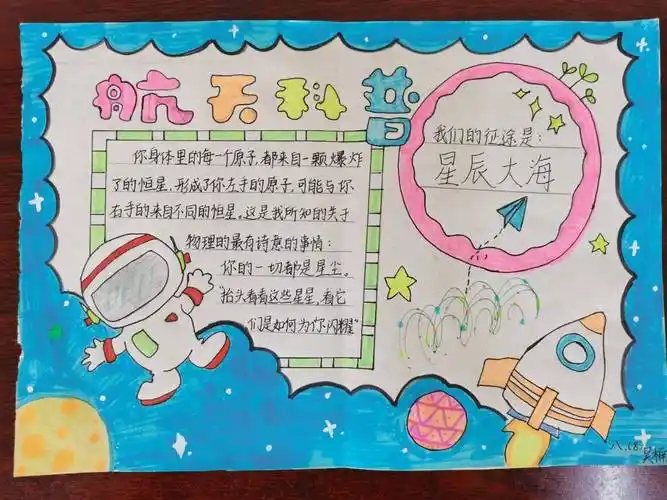 航天科普
你身体里的每一个原子，都来自一颗爆炸
了的恒星，形成了你左手的原子，可能与你
右手的来自不同的恒星。这是我所知的关于
物理的最有诗意的事情：
你的一切都是星尘。
"抬头看看这些星星，看它
们是如何为你闪耀"
我们的征途是：
星辰大海
八.(8)